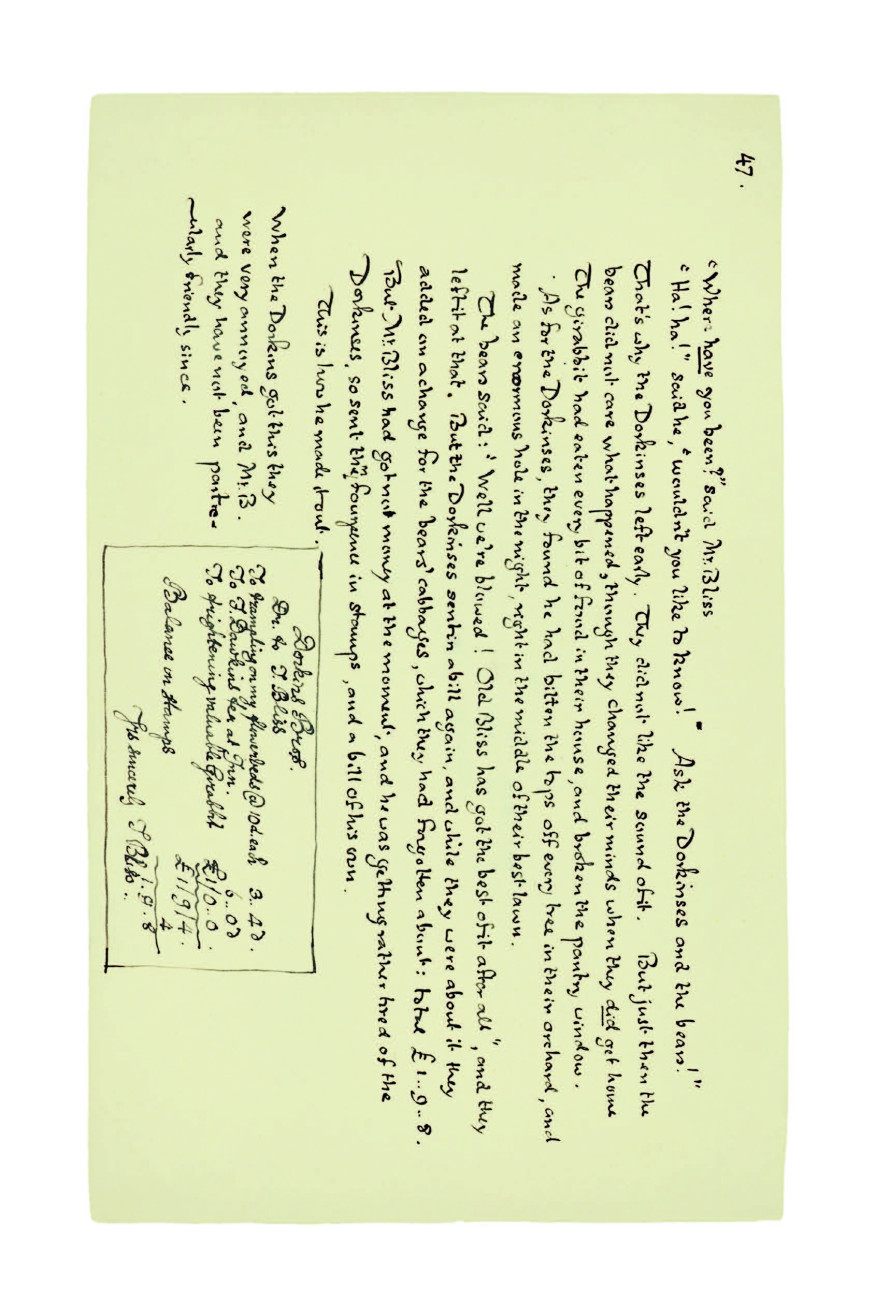 47.
"Where have you been?" said Mr. Bliss
"Ha! ha!" said he, "wouldn't you like to know!" Ask the Dorkinses and the bears!"
That's why the Dorkinses left early. They did not like the sound of it. But just then the
bears did not care what happened, though they changed their minds when they did get home
The girabbit had eaten every bit of food in their house, and broken the pantry window.
. As for the Dorkinses, they found he had bitten the tops off every tree in their orchard, and
made an enormous hole in the night, right in the middle of their best lawn.
The bears said: 'Well we're blowed! Old Bliss has got the best of it after all", and they
left it at that. But the Dorkinses sent in a bill again, and while they were about it they
added on a charge for the bears' cabbages, which they had forgotten about: total £1..9..8.
But Mr. Bliss had got not money at the moment, and he was getting rather tired of the
Dorkinses, so sent them fourpence in stamps, and a bill of his own.
This is how he made it out.
When the Dorkins got this they
were very annoyed, and Mr. B.
and they have not been partic-
-ularly friendly since.
Dorkins Bros.
Dr. to J. Bliss
To trampling on my flowerbeds @ 10d. each 3..4d.
To F. Dawkins tea at Inn. 6..0d
To frightening valuable Girabbit £1/0..0.
£1/9/4.
Balance in stamps 4
1.9.8
Yrs sincerely J. Bliss.